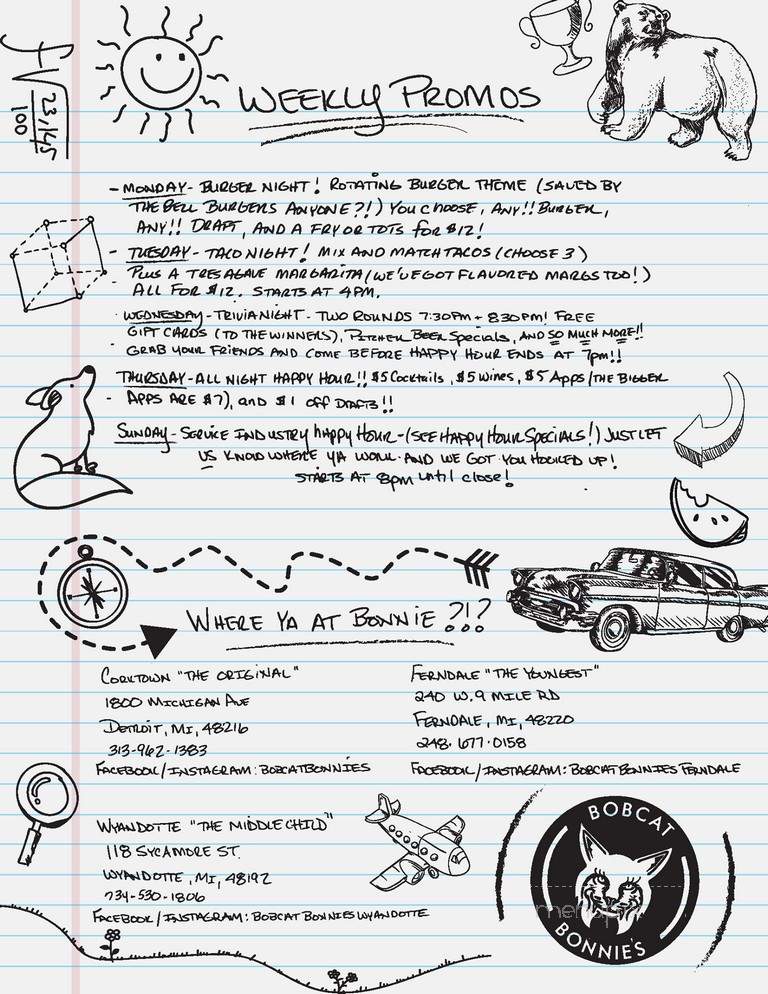 23,145
100
WEEKLY PROMOS
- MONDAY - BURGER NIGHT! ROTATING BURGER THEME (SAVED BY
THE BELL BURGERS ANYONE?!) YOU CHOOSE, ANY!! BURGER,
ANY!! DRAFT, AND A FRY OR TOTS FOR $12!
- TUESDAY - TACO NIGHT! MIX AND MATCH TACOS (CHOOSE 3)
PLUS A TRES AGAVE MARGARITA (WE'VE GOT FLAVORED MARGS TOO!)
ALL FOR $12. STARTS AT 4PM.
WEDNESDAY - TRIVIA NIGHT - TWO ROUNDS 7:30PM + 8:30PM! FREE
GIFT CARDS (TO THE WINNERS), PITCHER BEER SPECIALS, AND SO MUCH MORE!!
GRAB YOUR FRIENDS AND COME BEFORE HAPPY HOUR ENDS AT 7PM!!
THURSDAY - ALL NIGHT HAPPY HOUR!! $5 COCKTAILS, $5 WINES, $5 APPS (THE BIGGER
APPS ARE $7), AND $1 OFF DRAFTS!!
SUNDAY - SERVICE INDUSTRY HAPPY HOUR - (SEE HAPPY HOUR SPECIALS!) JUST LET
US KNOW WHERE YA WORK AND WE GOT YOU HOOKED UP!
STARTS AT 8PM UNTIL CLOSE!
WHERE YA AT BONNIE?!?
CORKTOWN "THE ORIGINAL"
1800 MICHIGAN AVE
DETROIT, MI, 48216
313-962-1383
FACEBOOK/INSTAGRAM: BOBCATBONNIES
FERNDALE "THE YOUNGEST"
240 W. 9 MILE RD
FERNDALE, MI, 48220
248-677-0158
FACEBOOK/INSTAGRAM: BOBCAT BONNIES FERNDALE
WYANDOTTE "THE MIDDLE CHILD"
118 SYCAMORE ST.
WYANDOTTE, MI, 48192
734-530-1806
FACEBOOK/INSTAGRAM: BOBCAT BONNIES WYANDOTTE
BOBCAT
BONNIE'S